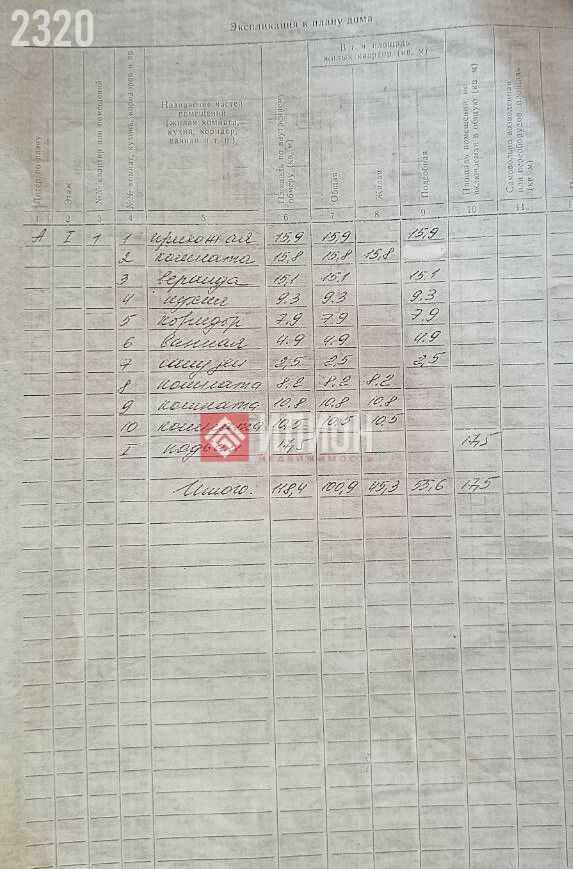 2320
Экспликация к плану дома
Литер по плану
Этаж
№№ квартир или помещений
№№ комнат, кухонь, коридоров и пр
Назначение частей помещений (жилая комната, кухня, коридор, ванная и т. п.)
Площадь по внутреннему обмеру (кв. м)
В т. ч площадь жилых квартир (кв. м)
Общая
Жилая
Подсобная
Площадь помещений, не включаемая в общую (кв. м)
Самовольно возведенная или переоборудов. площадь (кв м)
1 2 3 4 5 6 7 8 9 10 11
А I 1 1 прихожая 15,9 15,9 15,9
2 комната 15,8 15,8 15,8
3 веранда 15,1 15,1 15,1
4 кухня 9.3 9.3 9.3
5 коридор 7.9 7.9 7.9
6 ванная 4.9 4.9 4.9
7 санузел 2,5 2,5 2,5
8 комната 8.2 8.2 8.2
9 комната 10.8 10.8 10.8
10 комната 10,5 10,5 10,5
I подвал 17,5 17,5
ИЛИОН
недвижимость
Итого: 118,4 100,9 45,3 55,6 17,5